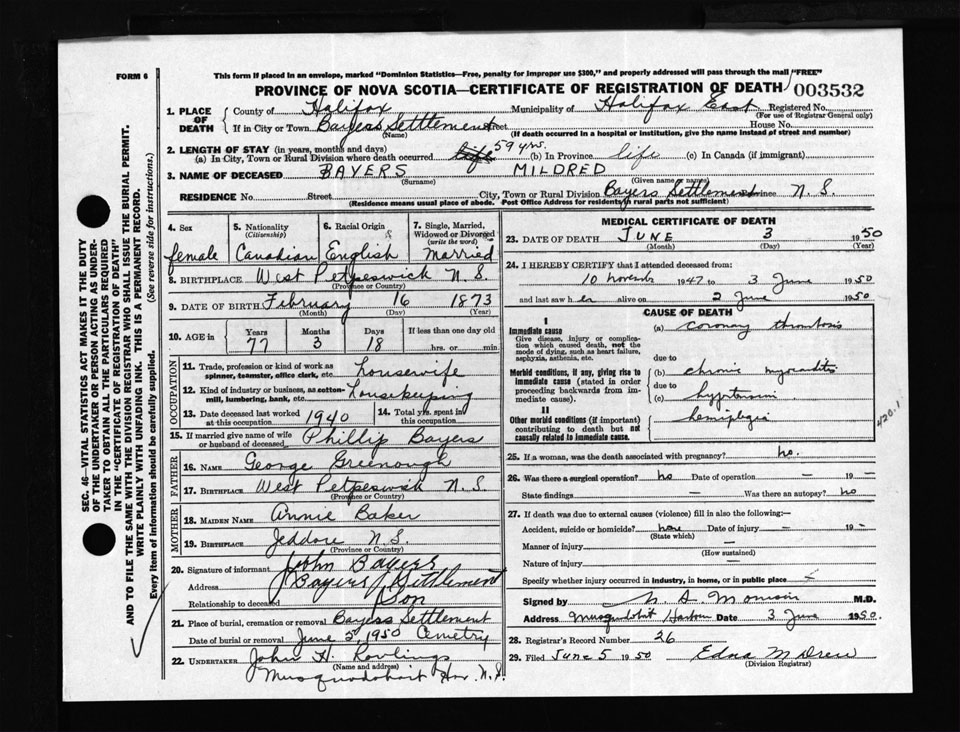 FORM 6
This form if placed in an envelope, marked "Dominion Statistics—Free, penalty for improper use $300," and properly addressed will pass through the mail "FREE"
PROVINCE OF NOVA SCOTIA—CERTIFICATE OF REGISTRATION OF DEATH 003532
1. PLACE OF DEATH County of Halifax Municipality of Halifax East Registered No.
(For use of Registrar General only)
If in City or Town Bayers Settlement Street House No.
(Name) (If death occurred in a hospital or institution, give the name instead of street and number)
2. LENGTH OF STAY (in years, months and days)
(a) In City, Town or Rural Division where death occurred life 59 yrs. (b) In Province life (c) In Canada (if immigrant)
3. NAME OF DECEASED BAYERS MILDRED
(Surname) (Given name or names)
RESIDENCE No. Street City, Town or Rural Division Bayers Settlement Province N. S.
(Residence means usual place of abode. Post Office Address for residents in rural parts not sufficient)
4. Sex female
5. Nationality (Citizenship) Canadian
6. Racial Origin English
7. Single, Married, Widowed or Divorced (write the word) Married
8. BIRTHPLACE West Petpeswick N. S.
(Province or Country)
9. DATE OF BIRTH February 16 1873
(Month) (Day) (Year)
10. AGE in Years Months Days If less than one day old
77 3 18 hrs. or min.
OCCUPATION
11. Trade, profession or kind of work as spinner, teamster, office clerk, etc. Housewife
12. Kind of industry or business, as cotton-mill, lumbering, bank, etc. Housekeeping
13. Date deceased last worked at this occupation 1940
14. Total yrs. spent in this occupation
15. If married give name of wife or husband of deceased Phillip Bayers
FATHER
16. NAME George Greenough
17. BIRTHPLACE West Petpeswick N. S.
(Province or Country)
MOTHER
18. MAIDEN NAME Annie Baker
19. BIRTHPLACE Jeddore N. S.
(Province or Country)
20. Signature of informant John Bayers
Address Bayers Settlement
Relationship to deceased Son
21. Place of burial, cremation or removal Bayers Settlement
Date of burial or removal June 5, 1950 Cemetry
22. UNDERTAKER John H. Rowlings
(Name and address)
Musquodoboit Har. N. S.
MEDICAL CERTIFICATE OF DEATH
23. DATE OF DEATH JUNE 3 1950
(Month) (Day) (Year)
24. I HEREBY CERTIFY that I attended deceased from:
10 November 1947 to 3 June 1950
and last saw her alive on 2 June 1950
CAUSE OF DEATH
I
Immediate cause
Give disease, injury or complication which caused death, not the mode of dying, such as heart failure, asphyxia, asthenia, etc.
(a) coronary thrombosis
due to
Morbid conditions, if any, giving rise to immediate cause (stated in order of proceeding backwards from immediate cause).
(b) chronic myocarditis
due to
(c) hypertension
II
Other morbid conditions (if important) contributing to death but not causally related to immediate cause.
hemiplegia
420.1
25. If a woman, was the death associated with pregnancy? no.
26. Was there a surgical operation? no Date of operation — 19 —
State findings — Was there an autopsy? no
27. If death was due to external causes (violence) fill in also the following:—
Accident, suicide or homicide? none Date of injury — 19 —
(State which)
Manner of injury —
(How sustained)
Nature of injury —
Specify whether injury occurred in industry, in home, or in public place —
Signed by M.D.
Address Musquodoboit Harbour Date 3 June 1950.
28. Registrar's Record Number 26
29. Filed June 5 1950 Edna M Drew
(Division Registrar)
SEC. 46—VITAL STATISTICS ACT MAKES IT THE DUTY
OF THE UNDERTAKER OR PERSON ACTING AS UNDER-
TAKER TO OBTAIN ALL THE PARTICULARS REQUIRED
IN THE "CERTIFICATE OF REGISTRATION OF DEATH"
AND TO FILE THE SAME WITH THE DIVISION REGISTRAR WHO SHALL ISSUE THE BURIAL PERMIT.
WRITE PLAINLY WITH UNFADING INK. THIS IS A PERMANENT RECORD.
Every item of information should be carefully supplied. (See reverse side for instructions.)